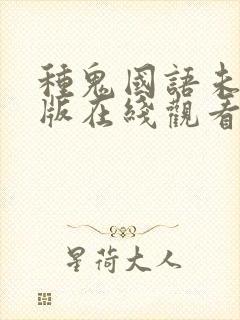 種鬼國語未
版在綫觀看
星荷大人